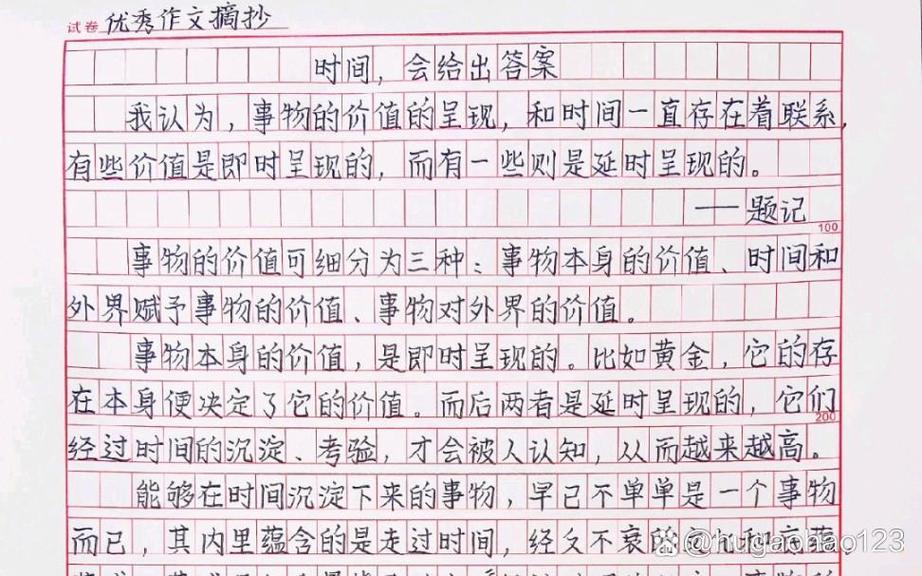 试卷 优秀作文摘抄
时间，会给出答案
我认为，事物的价值的呈现，和时间一直存在着联系，
有些价值是即时呈现的，而有一些则是延时呈现的。
——题记
100
事物的价值可细分为三种：事物本身的价值、时间和
外界赋予事物的价值、事物对外界的价值。
事物本身的价值，是即时呈现的。比如黄金，它的存
在本身便决定了它的价值。而后两者是延时呈现的，它们
200
经过时间的沉淀、考验，才会被人认知，从而越来越高。
能够在时间沉淀下来的事物，早已不单单是一个事物
而已，其内里蕴含的是走过时间，经久不衰的
@hugaohao123